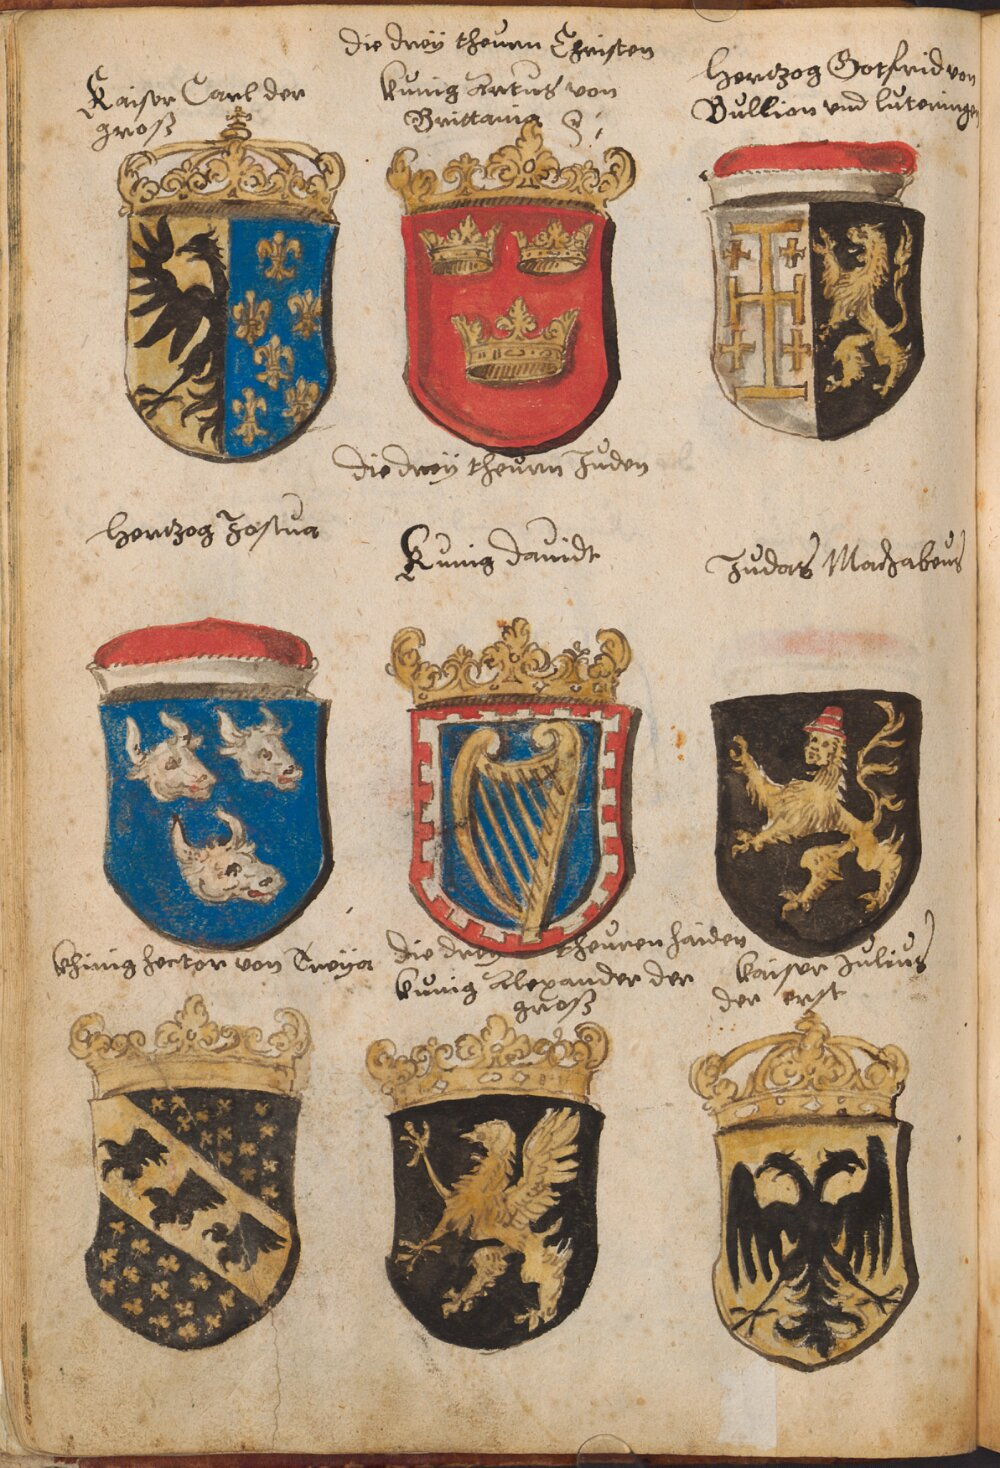 die dreÿ theurn Christen
Kaiser Carl der
groß
kunig Artus von
Brittania
Hertzog Gotfrid von
Bullion vnd luteringen
die dreÿ theurn Juden
Hertzog Josua
Kunig dauidt
Judas Machabeus
die dreÿ theuren haiden
khinig hector von Troÿa
kunig Alexander der
groß
kaiser Julius
der erst